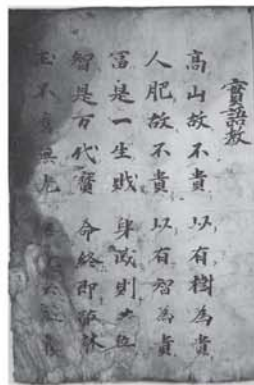 實語教
高山故不貴 以有樹為貴
人肥故不貴 以有智為貴
冨是一生財 身滅則共
智是万代寶 命終即
玉不無光